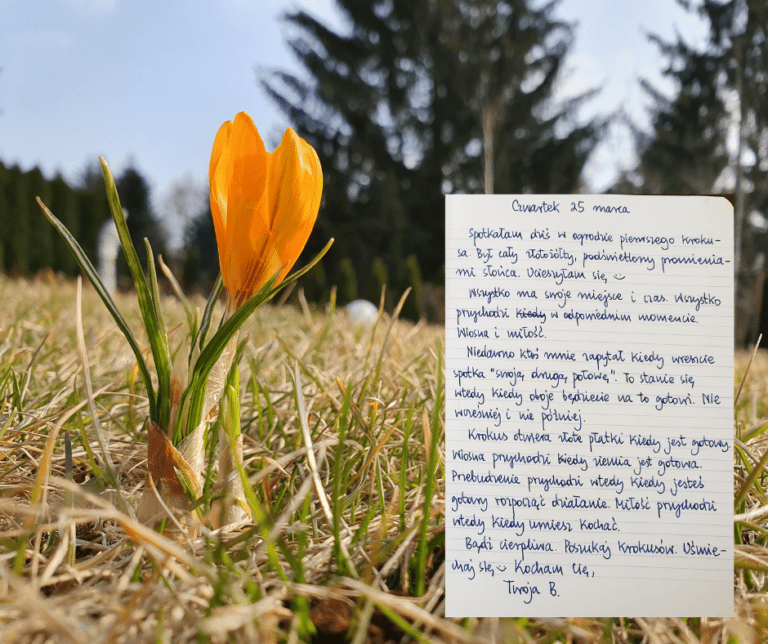 Czwartek 25 marca
Spotkałam dziś w ogrodzie pierwszego kroku-
sa. Był cały złotożółty, podświetlony promienia-
mi słońca. Ucieszyłam się
Wszystko ma swoje miejsce i czas. Wszystko
przychodzi kiedy w odpowiednim momencie.
Wiosna i miłość.
Niedawno ktoś mnie zapytał kiedy wreszcie
spotka "swoją drugą połowę". To stanie się
wtedy kiedy oboje będziecie na to gotowi. Nie
wcześniej i nie później.
Krokus otwiera złote płatki kiedy jest gotowy.
Wiosna przychodzi kiedy ziemia jest gotowa.
Przebudzenie przychodzi wtedy kiedy jesteś
gotowy rozpocząć działanie. Miłość przychodzi
wtedy kiedy umiesz kochać.
Bądź cierpliwa. Poszukaj krokusów. Uśmie-
chaj się. Kocham Cię,
Twoja B.